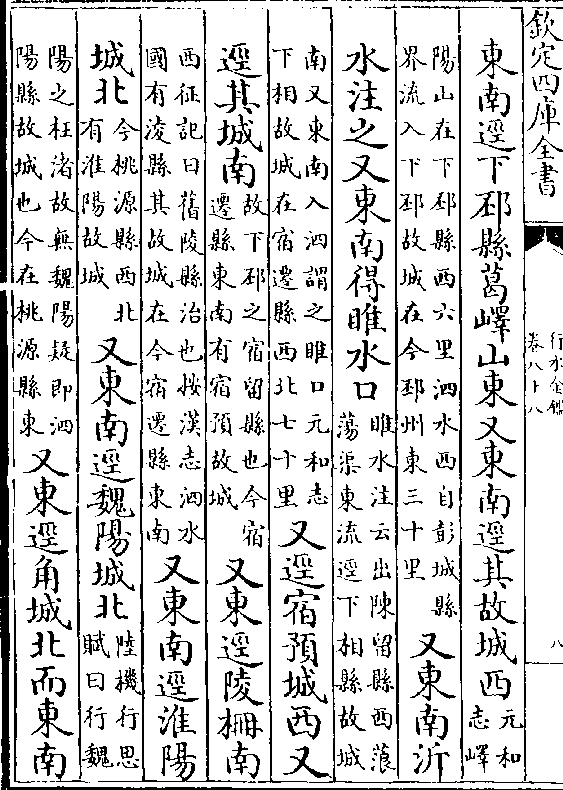 欽定四庫全書
行水金鑑
卷八十八
八
東南逕下邳縣葛嶧山東又東南逕其故城西
元和
志嶧
陽山在下邳縣西六里泗水西自彭城縣
界流入下邳故城在今邳州東三十里
又東南沂
水注之又東南得睢水口
睢水注云出陳留縣西蒗
蕩渠東流逕下相縣故城
南又東南入泗謂之睢口元和志
下相故城在宿遷縣西北七十里
又逕宿預城西又
逕其城南
故下邳之宿留縣也今宿
遷縣東南有宿預故城
又東逕陵柵南
西征記曰舊陵縣治也按漢志泗水
國有淩縣其故城在今宿遷縣東南
又東南逕淮陽
城北
今桃源縣西北
有淮陽故城
又東南逕魏陽城北
陸機行思
賦曰行魏
陽之枉渚故無魏陽疑即泗
陽縣故城也今在桃源縣東
又東逕角城北而東南